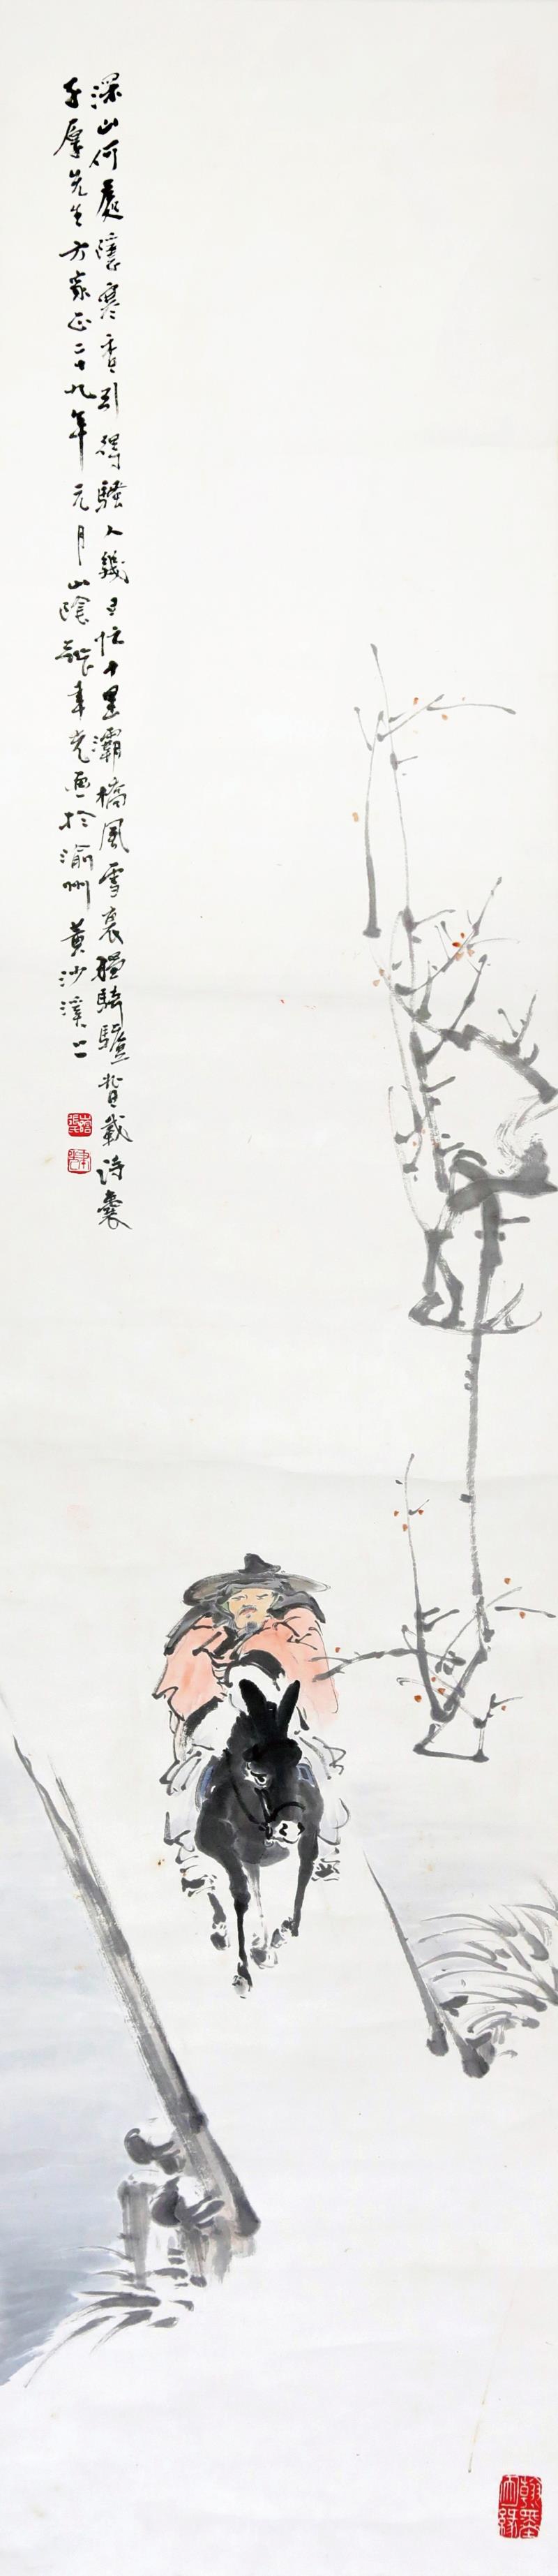 深山何處隱寒香引得騷人幾日忙十里灞橋風雪裏穩騎驢背載詩囊
子厚先生方家正二十九年元月山陰聿光画於渝州黄沙溪上
翰墨因緣